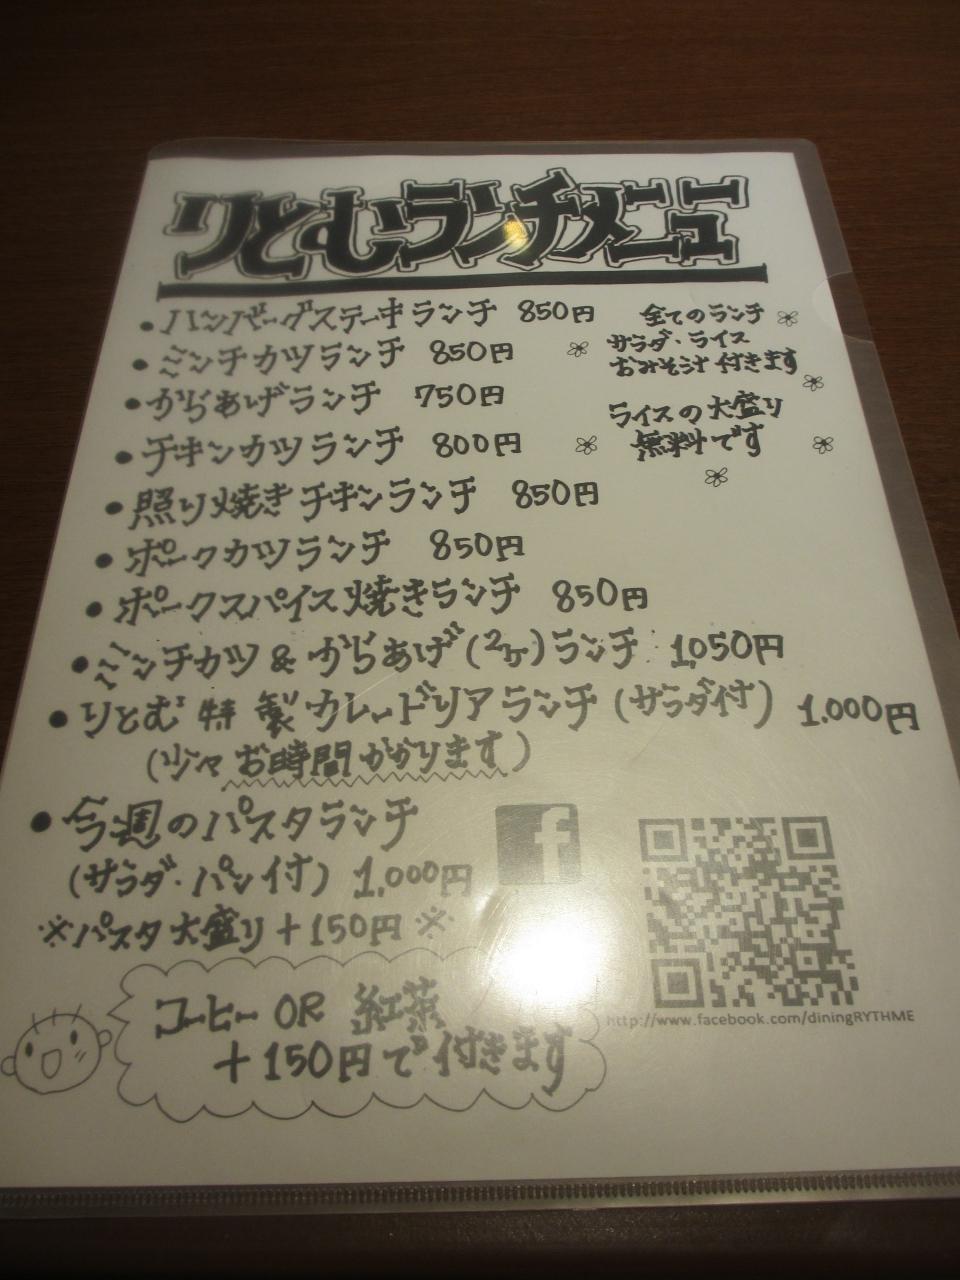 りとむランチメニュー
・ハンバーグステーキランチ 850円
・ミンチカツランチ 850円
・からあげランチ 750円
・チキンカツランチ 800円
・照り焼きチキンランチ 850円
・ポークカツランチ 850円
・ポークスパイス焼きランチ 850円
・ミンチカツ & からあげ(2ヶ)ランチ 1,050円
・りとむ特製カレードリアランチ(サラダ付) 1,000円
(少々お時間かかります)
・今週のパスタランチ
(サラダ・パン付) 1,000円
※パスタ大盛り+150円※
全てのランチ
サラダ・ライス
おみそ汁付きます
ライスの大盛り
無料です
f
http://www.facebook.com/diningRYTHME
コーヒー OR 紅茶
+150円で付きます